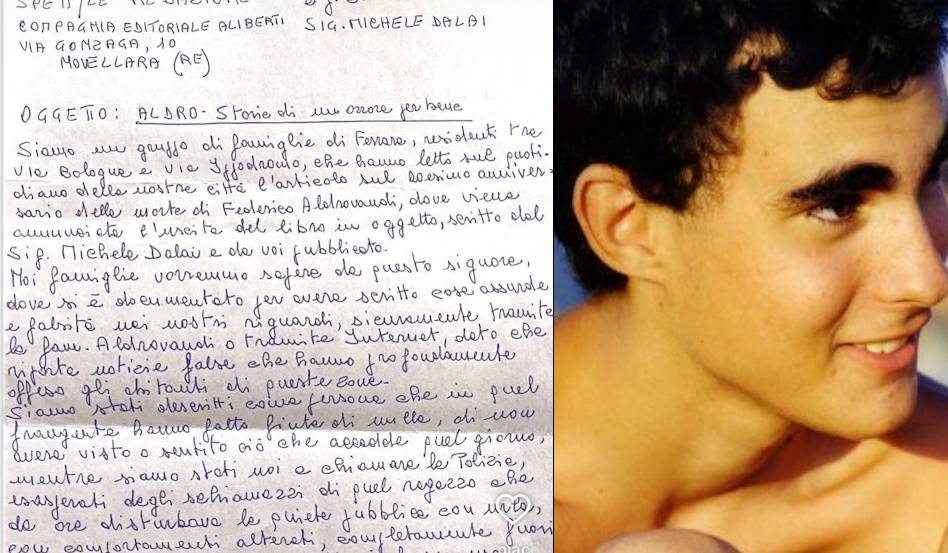 COMPAGNIA EDITORIALE ALIBERTI SIG. MICHELE DALAI
VIA GONZAGA, 10
NOVELLARA (RE)
OGGETTO: ALDRO - Storie di un orrore per bene
Siamo un gruppo di famiglie di Ferrara, residenti tra
Via Bologna e Via Ippodromo, che hanno letto sul quoti-
diano della nostra città l'articolo sul ventesimo anniver-
sario della morte di Federico Aldrovandi, dove viene
annunciata l'uscita del libro in oggetto, scritto dal
Sig. Michele Dalai e da voi pubblicato.
Noi famiglie vorremmo sapere da questo signore,
dove si è documentato per avere scritto cose assurde
e falsità nei nostri riguardi, sicuramente tramite
la fam. Aldrovandi o tramite Internet, dato che
riporta notizie false che hanno profondamente
offeso gli abitanti di queste zone.
Siamo stati descritti come persone che in quel
frangente hanno fatto finta di nulla, di non
avere visto o sentito ciò che accadde quel giorno,
mentre siamo stati noi a chiamare la Polizia,
esasperati dagli schiamazzi di quel ragazzo che
da ore disturbava la quiete pubblica con urla,
con comportamenti alterati, completamente fuori